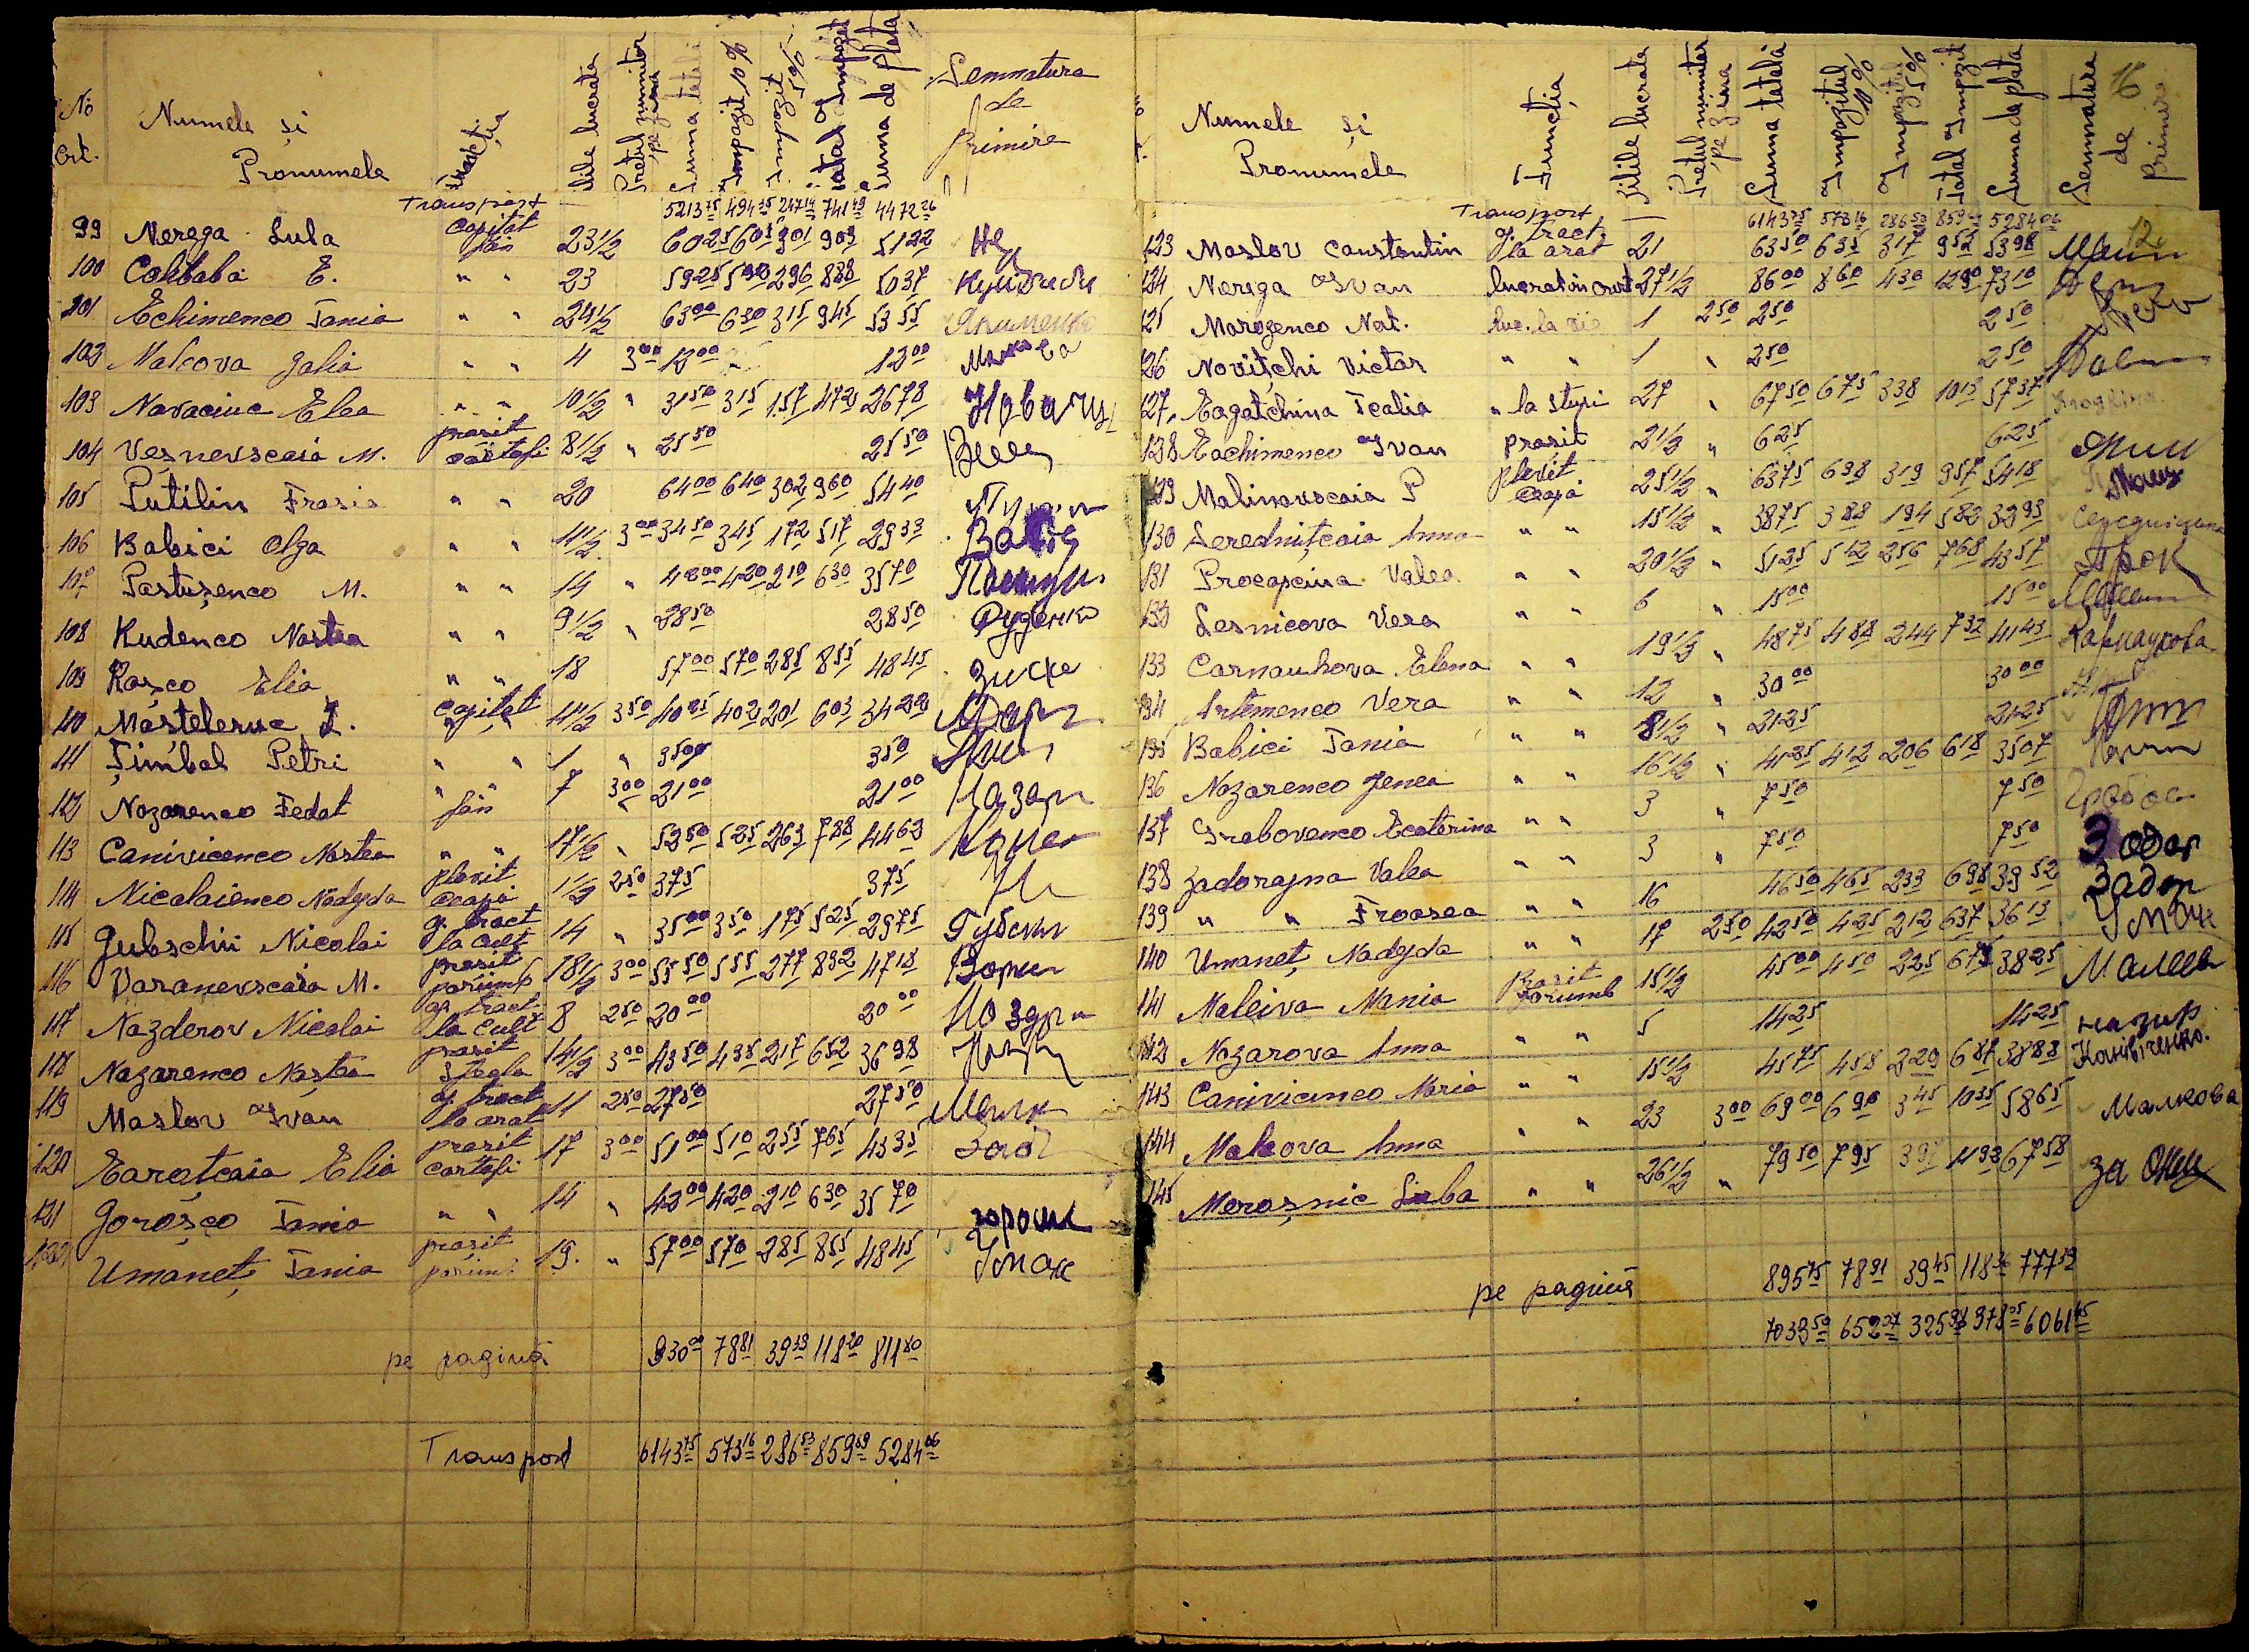 No Crt. Numele și Pronumele Funcția Zilele lucrate Prețul unimitor pe zina Suma totală Impozit 10% Impozit 5% Total Impozit Suma de plată Semnatura de Primire
Transport 5213 75 494 35 247 14 741 49 4472 26
99 Nerega Lula capitat fân 23 1/2 60 25 6 03 3 01 9 03 51 22
100 Coltbaba E. " " 23 59 25 5 92 2 96 8 88 50 37
101 Echimenco Tania " " 24 1/2 63 00 6 30 3 15 9 45 53 55
102 Malcova Galia " " 4 3 00 12 00 12 00
103 Navaciuc Elea " " 10 1/2 " 31 50 3 15 1 57 4 72 26 78
104 Veșnevscaia M. prasit cartofi 8 1/2 " 25 50 25 50
105 Putilin Frasia " " 20 64 00 6 40 3 02 9 60 54 40
106 Babici Olga " " 11 1/2 3 00 34 50 3 45 1 72 5 17 29 33
107 Pastușenco M. " " 14 " 42 00 4 20 2 10 6 30 35 70
108 Rudenco Nastea " " 9 1/2 " 28 50 28 50 Руденко
109 Rașco Elia " " 18 57 00 5 70 2 85 8 55 48 45
110 Masteleruc Z. capitat " 11 1/2 3 50 40 25 4 02 2 01 6 03 34 22
111 Țimbal Petri " " 1 " 3 50 3 50
112 Nazarenco Fedot " fân 7 3 00 21 00 21 00 Назар
113 Canivicenco Nastea " " 17 1/2 " 52 50 5 25 2 63 7 88 44 62
114 Nicolaienco Nadejda plevit ceapa 1 1/2 2 50 3 75 3 75
115 Gubschii Nicolai g. tract la cult 14 " 35 00 3 50 1 75 5 25 29 75
116 Varanevscaia M. prasit porumb 18 1/2 3 00 55 50 5 55 2 77 8 32 47 18
117 Nazderov Nicolai aj tract la cult 8 2 50 20 00 20 00
118 Nazarenco Nastea prasit sfecla 14 1/2 3 00 43 50 4 35 2 17 6 52 36 98
119 Maslov Ivan g tract la arat 11 2 50 27 50 27 50
120 Zaratcaia Elia prasit cartofi 17 3 00 51 00 5 10 2 55 7 65 43 35
121 Gorosco Tania " " 14 " 42 00 4 20 2 10 6 30 35 70
122 Umaneț Tania prasit porumb 19. " 57 00 5 70 2 85 8 55 48 45
pe pagină 930 00 78 81 39 39 118 20 811 80
Transport 6143 75 573 16 286 53 859 69 5284 06
Numele și Pronumele Funcția Zilele lucrate Prețul unimitor pe zina Suma totală Impozitul 10% Impozitul 5% Total Impozit Suma de plata Semnatura de Primire 16
Transport 6143 75 573 16 286 53 859 69 5284 06
123 Maslov Constantin g. tract. la arat 21 63 50 6 35 3 17 9 52 53 98 12
124 Nerega Ivan 27 1/2 86 00 8 60 4 30 12 90 73 10
125 Marozenco Nat. luc. la vie 1 2 50 2 50 2 50
126 Novițchi Victor " " 1 " 2 50 2 50
127. Zagatchina Tealia " la stupi 27 " 67 50 6 75 3 38 10 13 57 37
128 Eachimenco Ivan prasit 2 1/2 " 6 25 6 25
129 Malinovscaia P plevit ceapa 25 1/2 " 63 75 6 38 3 19 9 57 54 18
130 Serednițcaia Anna " " 15 1/2 " 38 75 3 88 1 94 5 82 32 93
131 Procapcina Valea " " 20 1/2 " 51 25 5 12 2 56 7 68 43 57 Прок
132 Lesnicova Vera " " 6 " 15 00 15 00
133 Carnauhova Elena " " 19 1/2 " 48 75 4 88 2 44 7 32 41 43 Карнаухова
134 Artemenco Vera " " 12 " 30 00 30 00
135 Babici Tania " " 8 1/2 " 21 25 21 25
136 Nazarenco Jenea " " 16 1/2 " 41 25 4 12 2 06 6 18 35 07
137 Grabovenco Ecaterina " " 3 " 7 50 7 50
138 Zadorajna Valea " " 3 " 7 50 7 50
139 " " Froasea " " 16 46 50 4 65 2 33 6 98 39 52 Задор
140 Umaneț Nadejda " " 17 2 50 42 50 4 25 2 12 6 37 36 13
141 Maleiva Mania Prasit porumb 15 1/2 45 00 4 50 2 25 6 75 38 25 Малеева
142 Nazarova Anna " " 5 14 25 14 25
143 Canivicenco Maria " " 15 1/2 45 75 4 58 2 29 6 87 38 88
144 Malcova Anna " " 23 3 00 69 00 6 90 3 45 10 35 58 65 Малкова
145 Merașnic Liuba " " 26 1/2 " 79 50 7 95 3 97 11 92 67 58
pe pagină 895 75 78 91 39 45 118 36 777 39
7039 50 652 07 325 98 978 05 6061 45